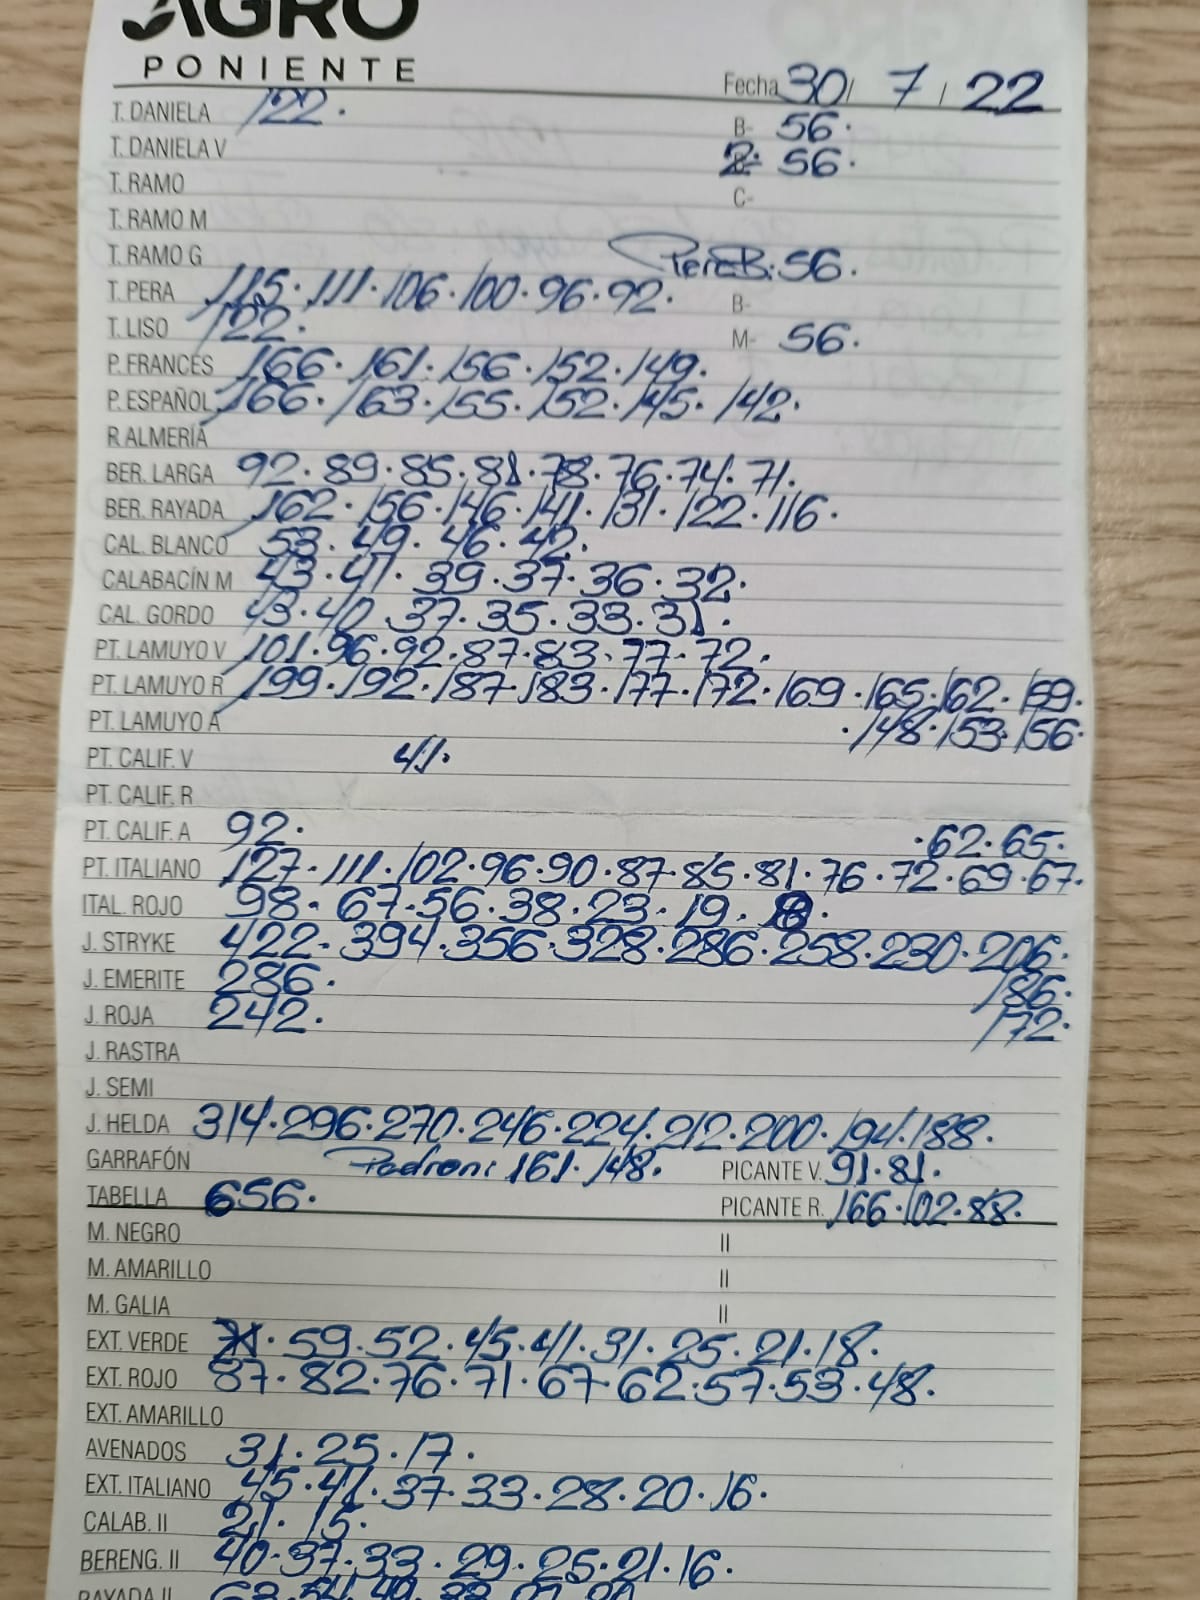 AGRO
PONIENTE
Fecha 30/ 7 / 22
T. DANIELA 122. B- 56.
T. DANIELA V 2- 56.
T. RAMO C-
T. RAMO M
T. RAMO G PeraB: 56.
T. PERA 115. 111. 106. 100. 96. 92. B-
T. LISO 122. M- 56.
P. FRANCES 166. 161. 156. 152. 149.
P. ESPAÑOL 166. 163. 155. 152. 145. 142.
P. ALMERÍA
BER. LARGA 92. 89. 85. 81. 78. 76. 74. 71.
BER. RAYADA 162. 156. 146. 141. 131. 122. 116.
CAL. BLANCO 53. 49. 46. 42.
CALABACÍN M 43. 41. 39. 37. 36. 32.
CAL. GORDO 43. 40. 37. 35. 33. 31.
PT. LAMUYO V 101. 96. 92. 87. 83. 77. 72.
PT. LAMUYO R 199. 192. 187. 183. 177. 172. 169. 165. 162. 159.
PT. LAMUYO A .148. 153. 156.
PT. CALIF. V 41.
PT. CALIF. R
PT. CALIF. A 92. .62. 65.
PT. ITALIANO 127. 111. 102. 96. 90. 87. 85. 81. 76. 72. 69. 67.
ITAL. ROJO 98. 67. 56. 38. 23. 19.
J. STRYKE 422. 394. 356. 328. 286. 258. 230. 206.
J. EMERITE 286. 186.
J. ROJA 242. 172.
J. RASTRA
J. SEMI
J. HELDA 314. 296. 270. 246. 224. 212. 200. 194. 188.
GARRAFÓN Padron: 161. 148. PICANTE V. 91. 81.
TABELLA 656. PICANTE R. 166. 102. 88.
M. NEGRO II
M. AMARILLO II
M. GALIA II
EXT. VERDE 59. 52. 45. 41. 31. 25. 21. 18.
EXT. ROJO 87. 82. 76. 71. 67. 62. 57. 53. 48.
EXT. AMARILLO
AVENADOS 31. 25. 17.
EXT. ITALIANO 45. 41. 37. 33. 28. 20. 16.
CALAB. II 21. 15.
BERENG. II 40. 37. 33. 29. 25. 21. 16.
RAYADA II